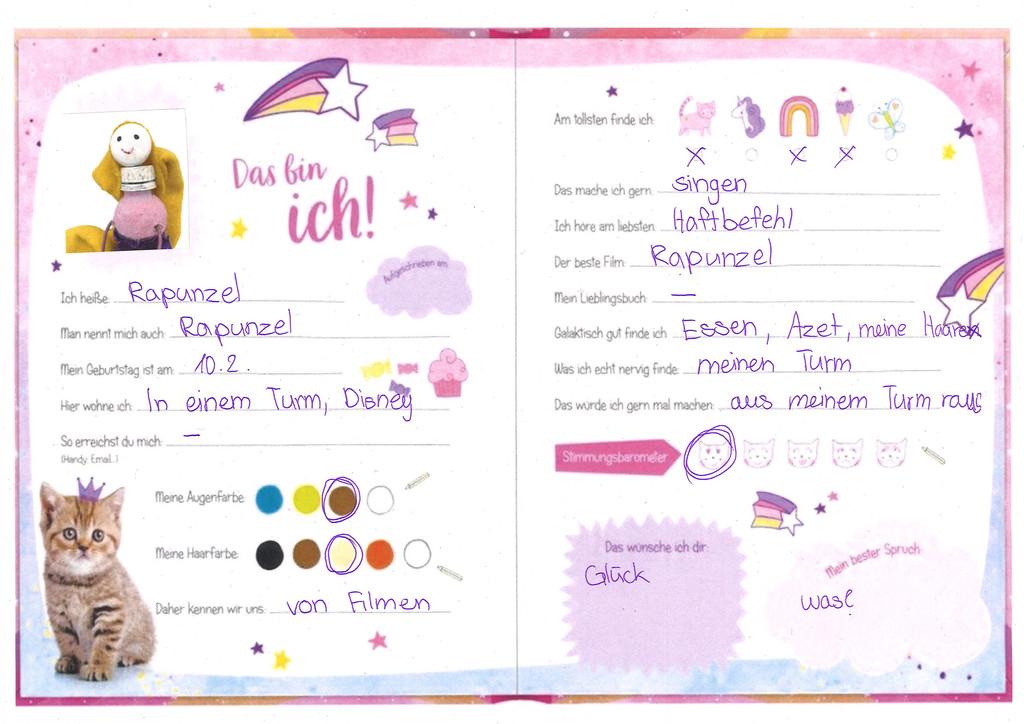 Das bin
ich!
Aufgeschrieben am:
Ich heiße: Rapunzel
Man nennt mich auch: Rapunzel
Mein Geburtstag ist am: 10.2.
Hier wohne ich: In einem Turm, Disney
So erreichst du mich: –
(Handy, Email...)
Meine Augenfarbe:
Meine Haarfarbe:
Daher kennen wir uns: von Filmen
Am tollsten finde ich:
x x x
Das mache ich gern: singen
Ich höre am liebsten: Haftbefehl
Der beste Film: Rapunzel
Mein Lieblingsbuch: –
Galaktisch gut finde ich: Essen, Azet, meine Haare
Was ich echt nervig finde: meinen Turm
Das würde ich gern mal machen: aus meinem Turm raus
Stimmungsbarometer
Das wünsche ich dir:
Glück
Mein bester Spruch:
was?